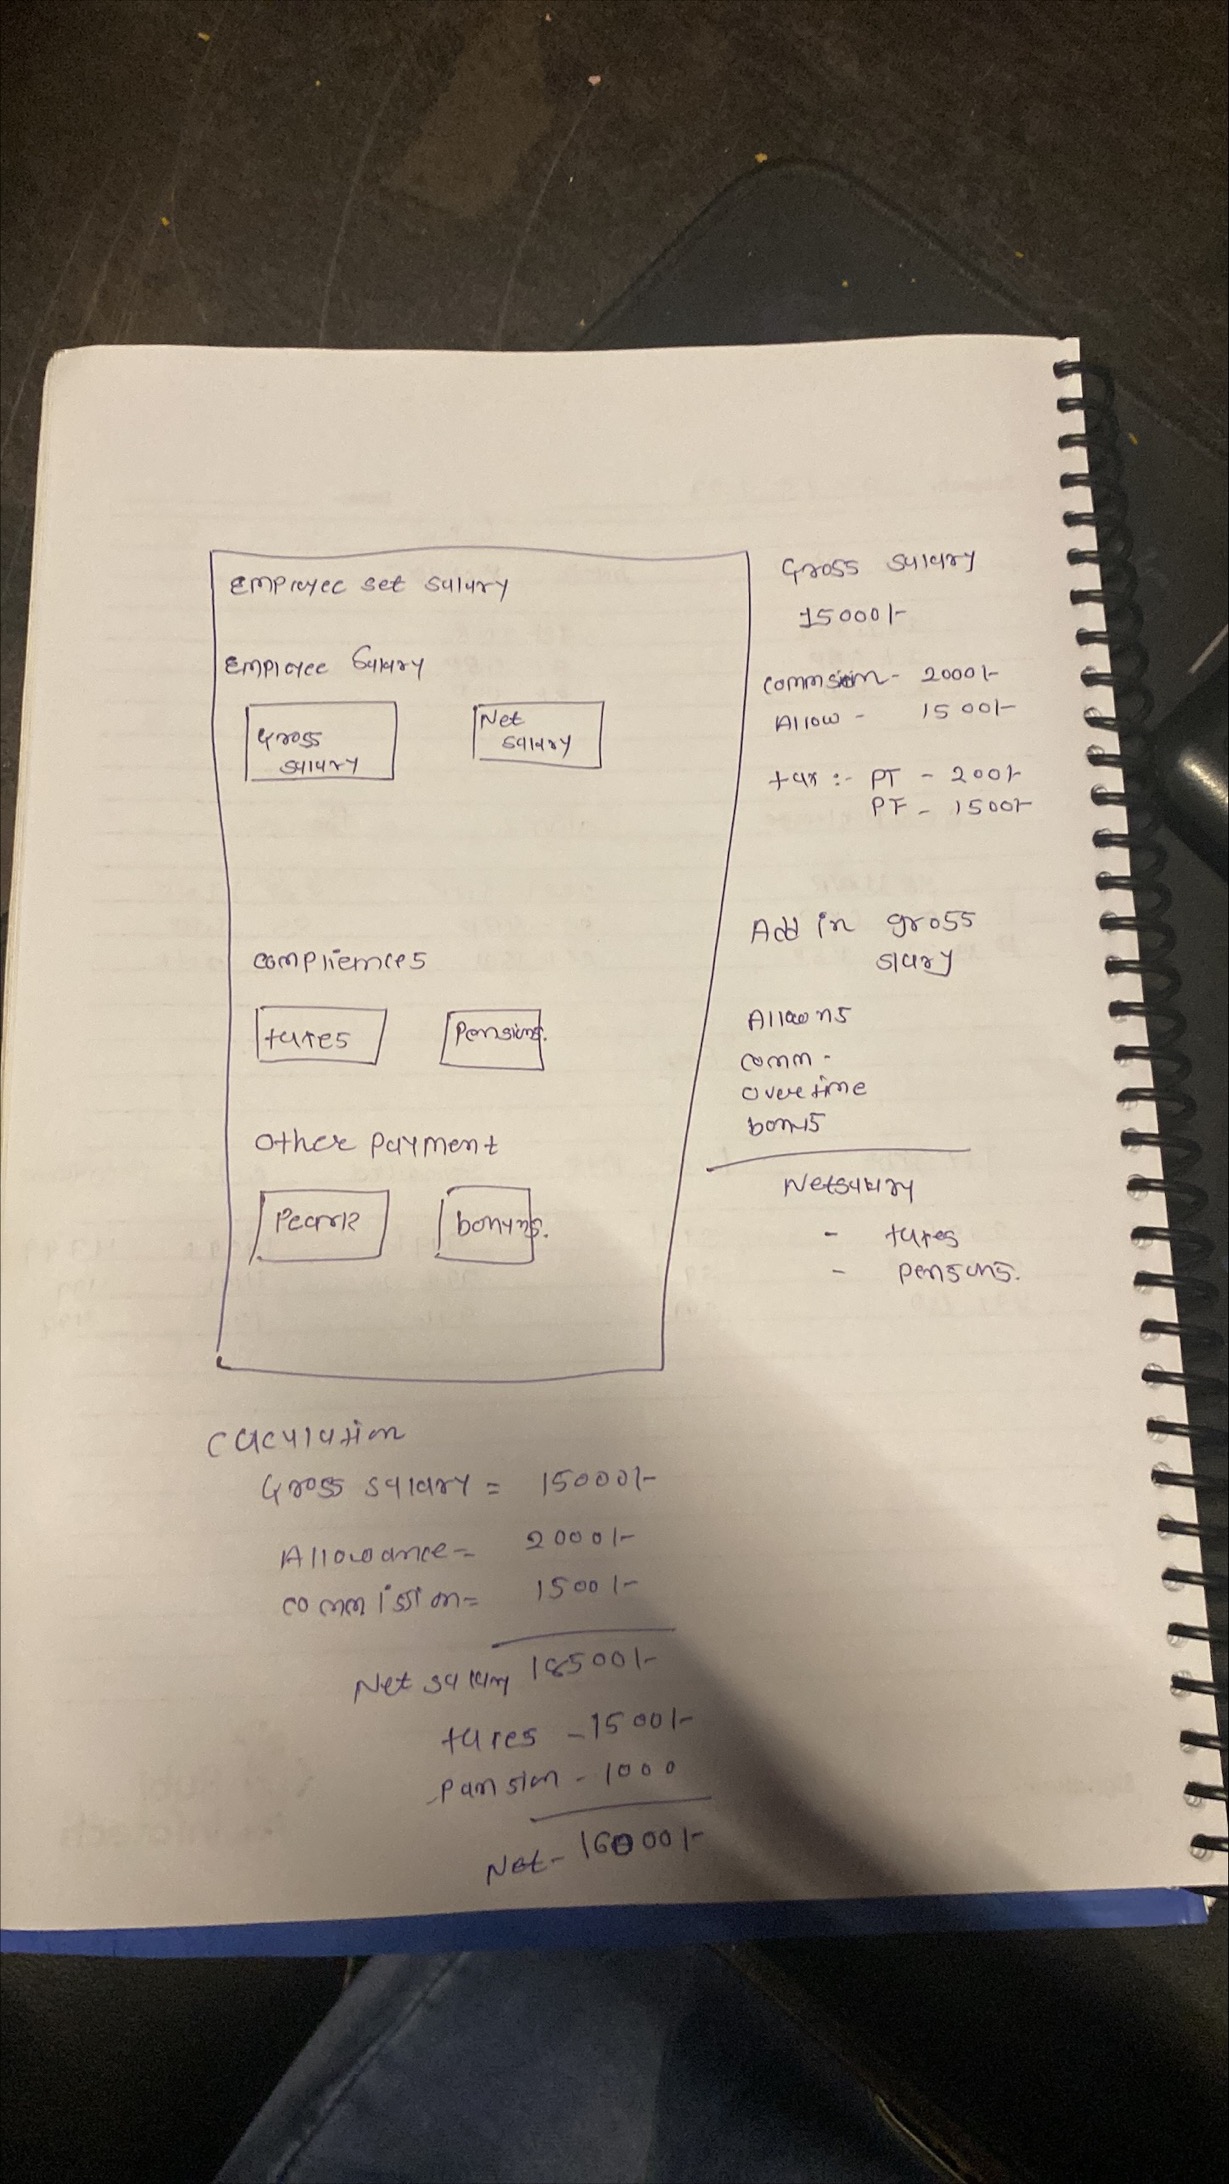 Employee set salary
Employee Salary
Gross
salary
Net
salary
compliences
taxes
Pensions.
Other payment
Peark
bonuns.
Gross salary
15000/-
commsion - 2000/-
Allow - 1500/-
tax :- PT - 200/-
PF - 1500/-
Add in gross
slary
Allowns
comm -
overtime
bonus
Netsalary
- taxes
- pensons.
Caculation
Gross salary = 15000/-
Allowance = 2000/-
commission = 1500/-
Net salary 18500/-
taxes - 1500/-
pansion - 1000
Net - 16000/-